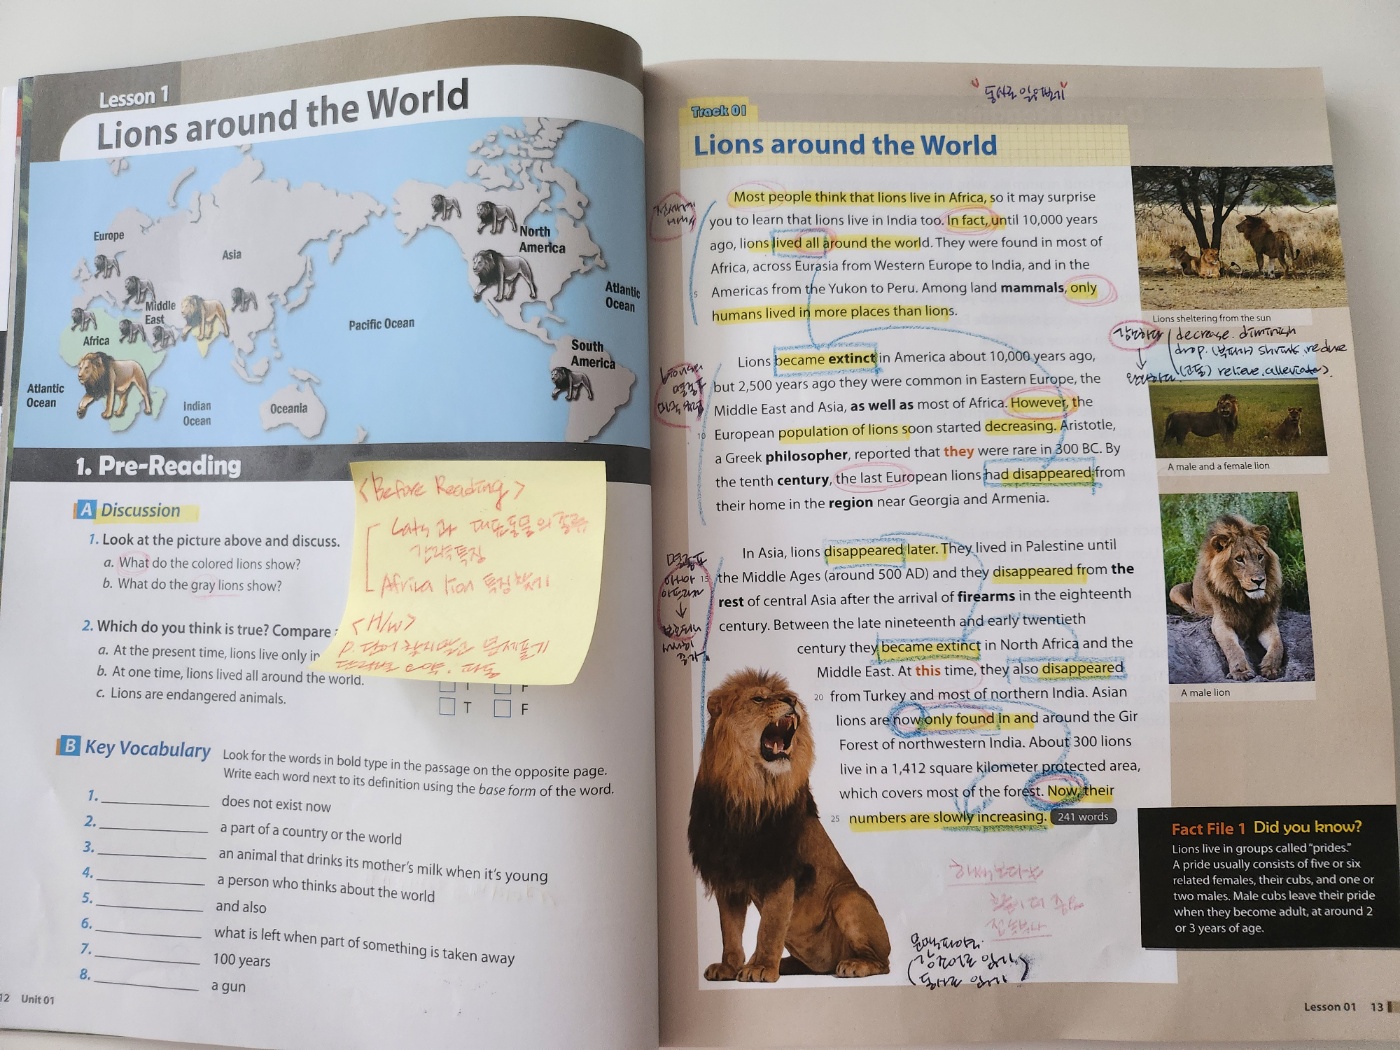 Lesson 1
Lions around the World
Europe
Asia
Middle
East
Africa
Atlantic
Ocean
Indian
Ocean
Pacific Ocean
Oceania
North
America
Atlantic
Ocean
South
America
1. Pre-Reading
A Discussion
1. Look at the picture above and discuss.
a. What do the colored lions show?
b. What do the gray lions show?
2. Which do you think is true? Compare
a. At the present time, lions live only in
b. At one time, lions lived all around the world.
T F
c. Lions are endangered animals.
T F
<Before Reading>
Africa lion 특징 찾기
<H/W>
B Key Vocabulary
Look for the words in bold type in the passage on the opposite page.
Write each word next to its definition using the base form of the word.
1. does not exist now
2. a part of a country or the world
3. an animal that drinks its mother's milk when it's young
4. a person who thinks about the world
5. and also
6. what is left when part of something is taken away
7. 100 years
8. a gun
12 Unit 01
Track 01
Lions around the World
Most people think that lions live in Africa, so it may surprise
you to learn that lions live in India too. In fact, until 10,000 years
ago, lions lived all around the world. They were found in most of
Africa, across Eurasia from Western Europe to India, and in the
5 Americas from the Yukon to Peru. Among land mammals, only
humans lived in more places than lions.
Lions became extinct in America about 10,000 years ago,
but 2,500 years ago they were common in Eastern Europe, the
Middle East and Asia, as well as most of Africa. However, the
10 European population of lions soon started decreasing. Aristotle,
a Greek philosopher, reported that they were rare in 300 BC. By
the tenth century, the last European lions had disappeared from
their home in the region near Georgia and Armenia.
In Asia, lions disappeared later. They lived in Palestine until
15 the Middle Ages (around 500 AD) and they disappeared from the
rest of central Asia after the arrival of firearms in the eighteenth
century. Between the late nineteenth and early twentieth
century they became extinct in North Africa and the
Middle East. At this time, they also disappeared
20 from Turkey and most of northern India. Asian
lions are now only found in and around the Gir
Forest of northwestern India. About 300 lions
live in a 1,412 square kilometer protected area,
which covers most of the forest. Now, their
25 numbers are slowly increasing. 241 words
Lions sheltering from the sun
decrease. diminish
drop. shrink. reduce
relieve. alleviate
A male and a female lion
A male lion
Fact File 1 Did you know?
Lions live in groups called "prides."
A pride usually consists of five or six
related females, their cubs, and one or
two males. Male cubs leave their pride
when they become adult, at around 2
or 3 years of age.
Lesson 01 13